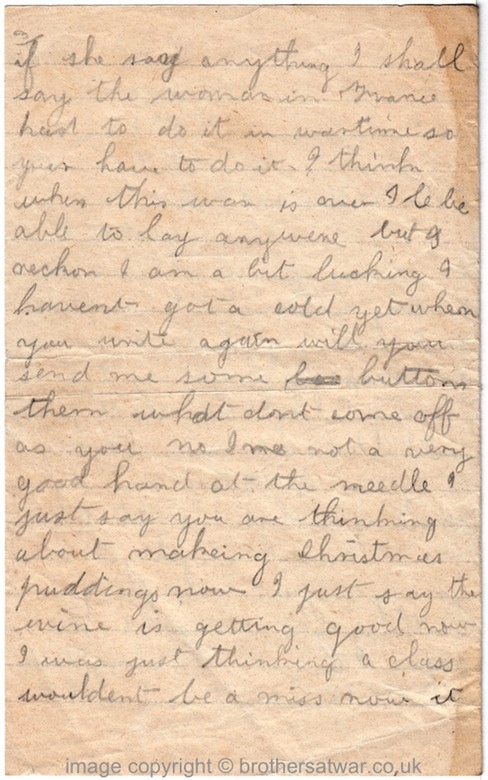 3
if she say anything I shall
say the woman in France
hast to do it in wartime so
you have to do it. I think
when this war is over I le be
able to lay anywere but I
reckon I am a bit lucking I
havent got a cold yet when
you write again will you
send me some buttons
them what dont come off
as you no I me not a very
good hand at the needle I
just say you are thinking
about makeing Christmas
puddings now I just say the
wine is getting good now
I was just thinking a class
wouldent be a miss now it
image copyright © brothersatwar.co.uk